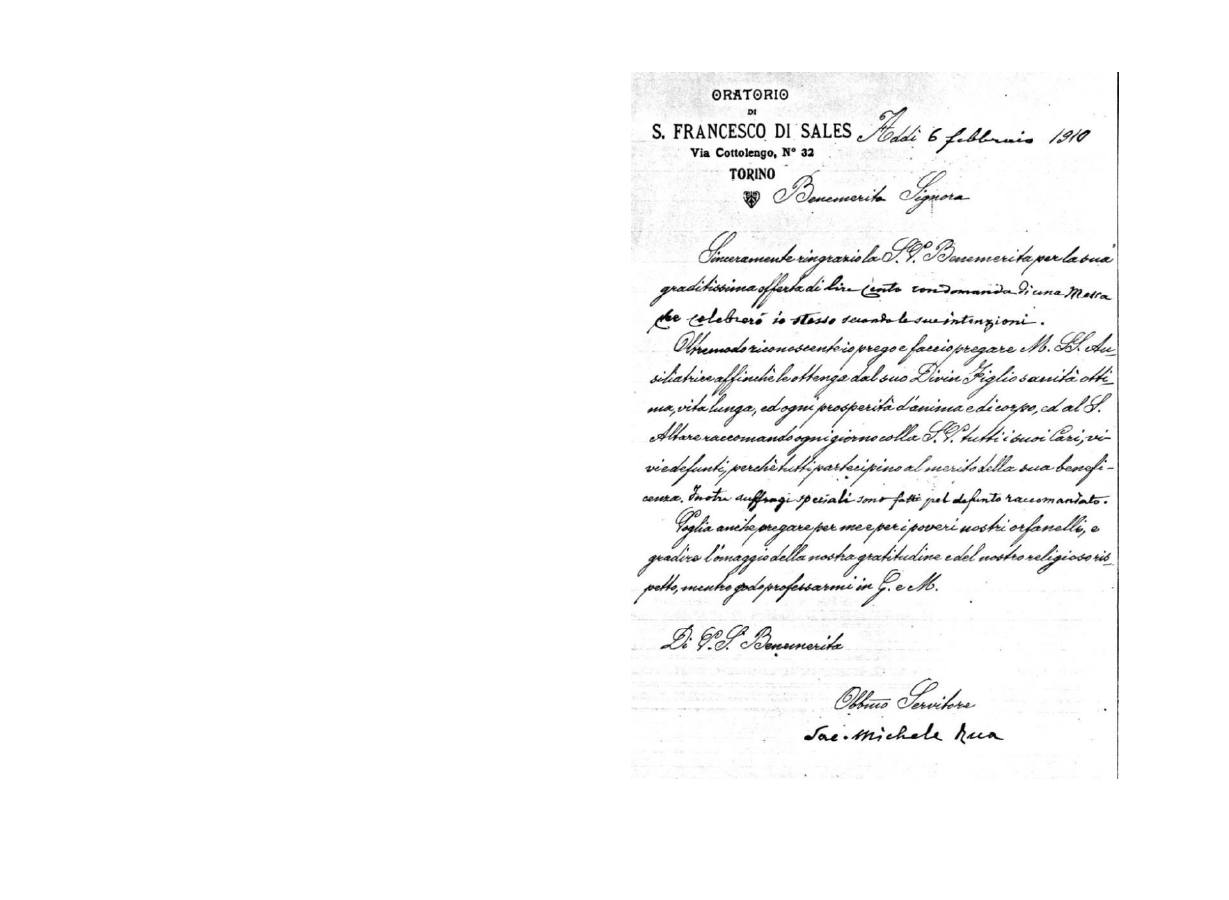 ORATORIO
DI
S. FRANCESCO DI SALES
Via Cottolengo, Nº 32
TORINO
Addì 6 febbraio 1910
Benemerita Signora
Sinceramente ringrazio la S. V. Benemerita per la sua
graditissima offerta di lire Cento con domanda di una Messa
che celebrerò io stesso secondo le sue intenzioni.
Oltremodo riconoscente io prego e faccio pregare M. SS. Au-
siliatrice affinchè le ottenga dal suo Divin Figlio sanità otti-
ma, vita lunga, ed ogni prosperità d'anima e di corpo, ed al S.
Altare raccomando ogni giorno colla S. V. tutti i suoi Cari, vi-
vi e defunti, perchè tutti partecipino al merito della sua benefi-
cenza. Inoltre suffragi speciali sono fatti pel defunto raccomandato.
Voglia anche pregare per me e per i poveri nostri orfanelli, e
gradire l'omaggio della nostra gratitudine e del nostro religioso ris-
petto, mentre godo professarmi in G. e M.
Di V. S. Benemerita
Obbmo Servitore
Sac. Michele Rua